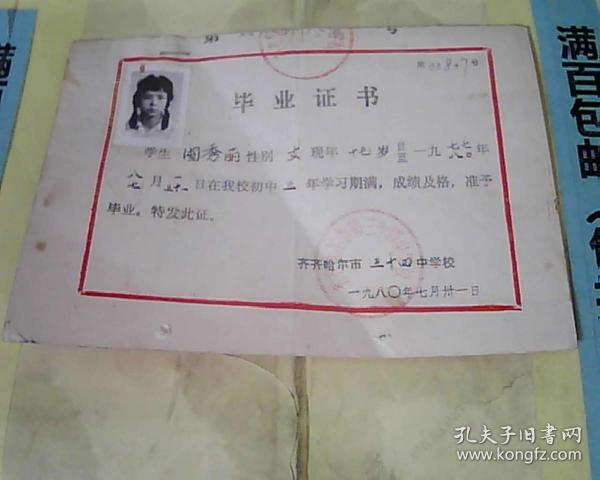 第 号
第 0847 号
毕业证书
学生 闫秀丽 性别 女 现年 十七 岁 自 至 一九 七七 八〇 年
八 七 月 三十一 日在我校初中 三 年学习期满，成绩及格，准予
毕业。特发此证。
齐齐哈尔市 三十四 中学校
一九八〇年七月卅一日
满百包邮
满
孔夫子旧书网
www.kongfz.com